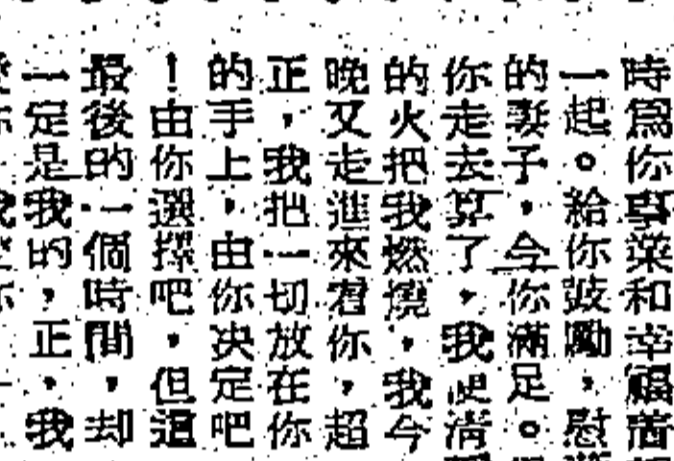 時爲你事業和幸福着
一起。給你鼓勵，慰
的妻子，令你滿足。
你走去算了，我便清
的火把我燃燒，我今
晚又走進來看你，超
正，我把一切放在你
的手上，由你決定吧
！由你選擇吧，但這
最後的一個時間，却
一定是我的，正，我